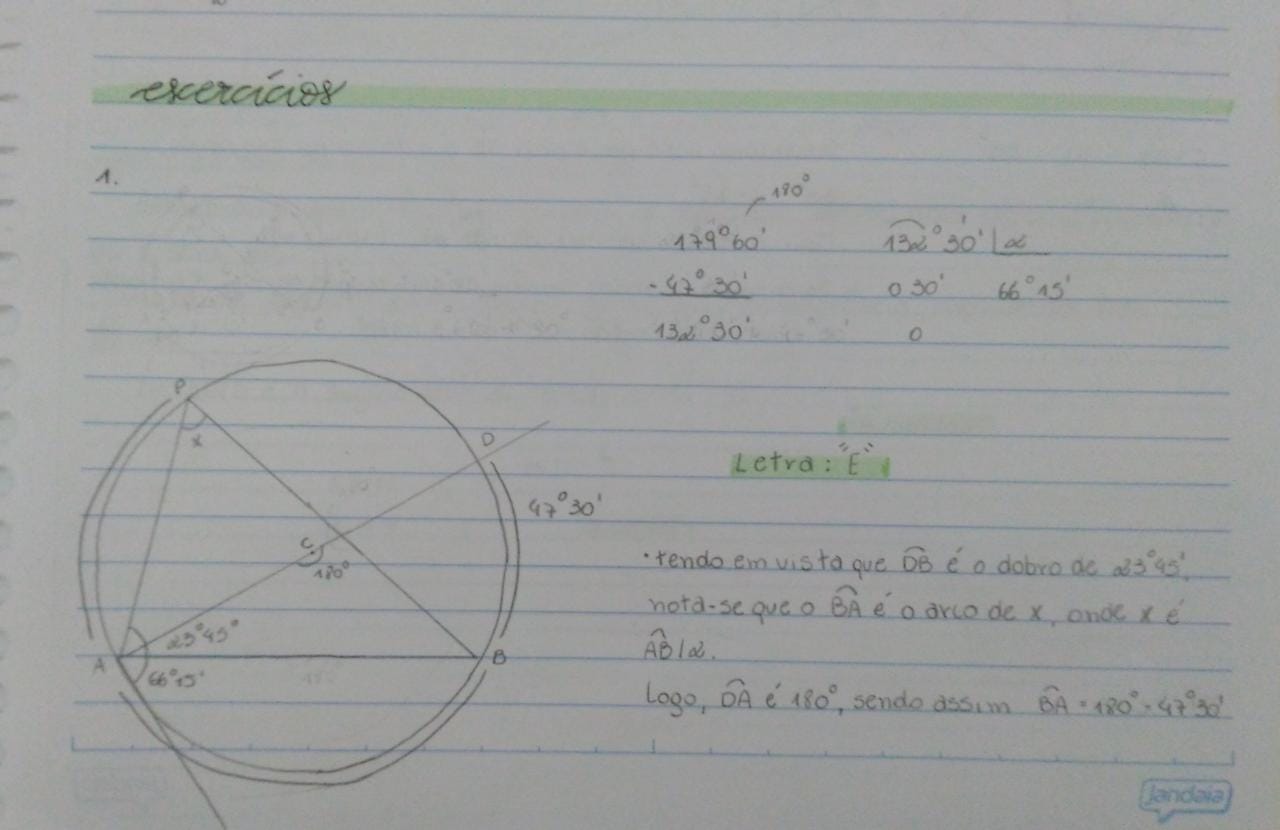 exercícios
1.
180°
179°60'
- 47°30'
132°30'
132°30' |2
0 30' 66°15'
0
P
x
D
47°30'
C
180°
23°45°
A
B
66°15'
Letra: "E"
• tendo em vista que DB é o dobro de 23°45',
nota-se que o BA é o arco de x, onde x é
AB/2.
Logo, DA é 180°, sendo assim BA = 180° - 47°30'
jandaia